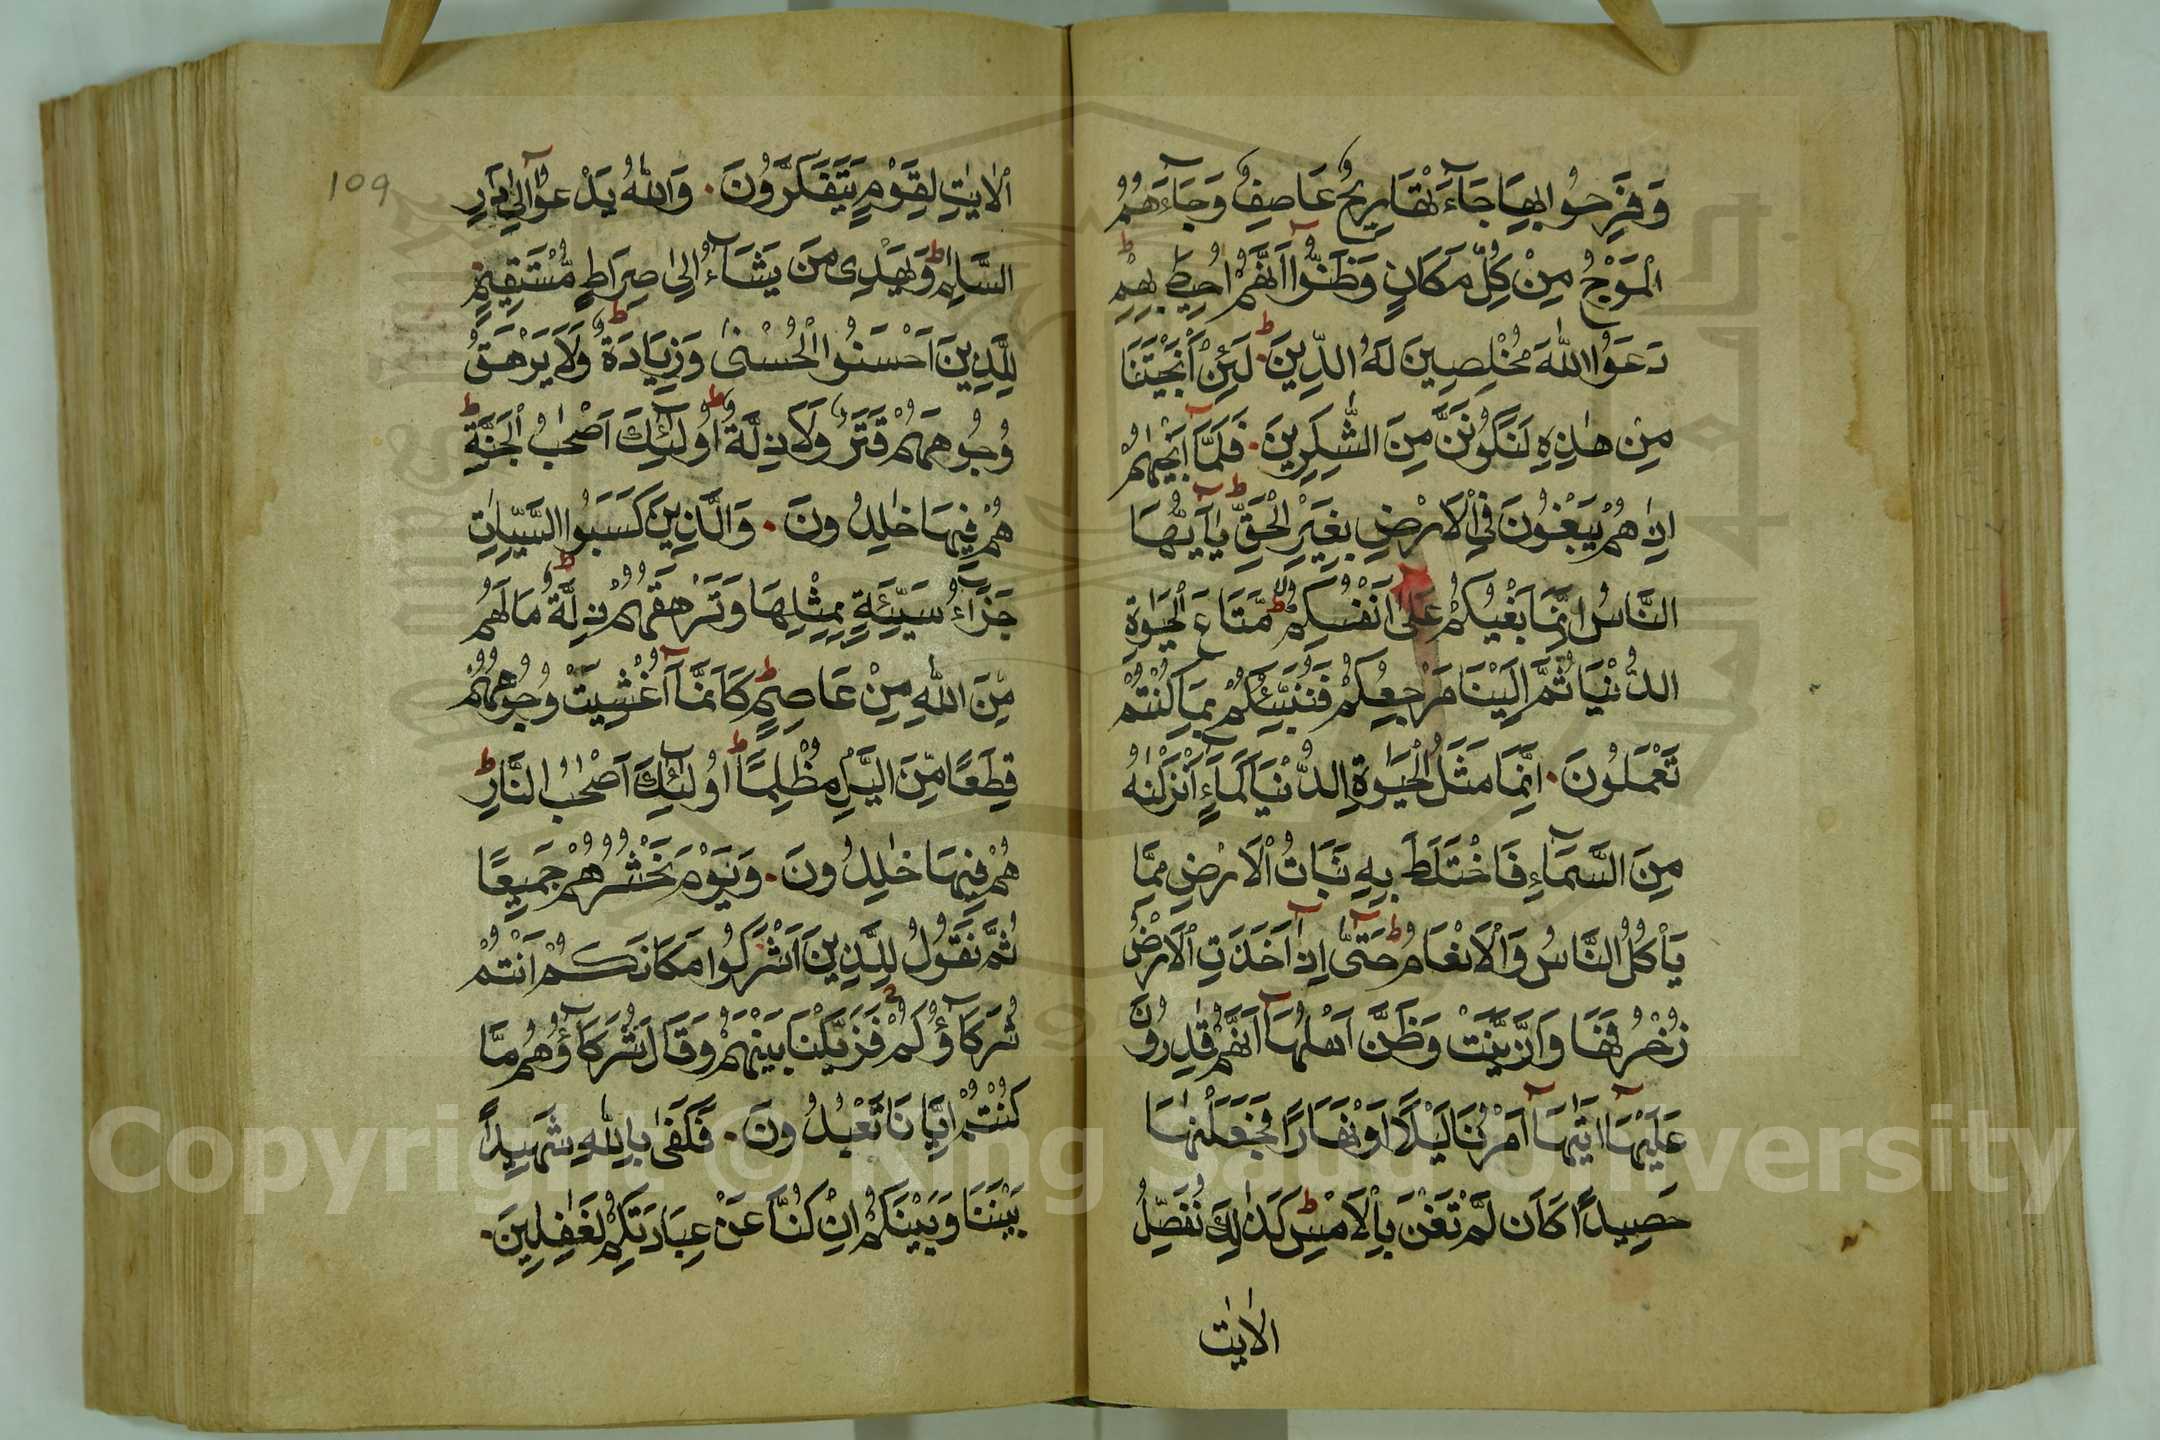 وَفَرِحُوا بِهَا جَآءَتْهَا رِيحٌ عَاصِفٌ وَجَآءَهُمُ
الْمَوْجُ مِنْ كُلِّ مَكَانٍ وَظَنُّوٓا اَنَّهُمْ اُحِيطَ بِهِمْ ط
دَعَوُا اللّٰهَ مُخْلِصِينَ لَهُ الدِّينَ ط لَئِنْ اَنْجَيْتَنَا
مِنْ هٰذِهِ لَنَكُونَنَّ مِنَ الشّٰكِرِينَ . فَلَمَّآ اَنْجٰيهُمْ
اِذَا هُمْ يَبْغُونَ فِي الْاَرْضِ بِغَيْرِ الْحَقِّ ط يٰٓا اَيُّهَا
النَّاسُ اِنَّمَا بَغْيُكُمْ عَلٰٓى اَنْفُسِكُمْ ط مَّتَاعَ الْحَيٰوةِ
الدُّنْيَا ثُمَّ اِلَيْنَا مَرْجِعُكُمْ فَنُنَبِّئُكُمْ بِمَا كُنْتُمْ
تَعْمَلُونَ . اِنَّمَا مَثَلُ الْحَيٰوةِ الدُّنْيَا كَمَآءٍ اَنْزَلْنٰهُ
مِنَ السَّمَآءِ فَاخْتَلَطَ بِهِ نَبَاتُ الْاَرْضِ مِمَّا
يَاْكُلُ النَّاسُ وَالْاَنْعَامُ ط حَتّٰٓى اِذَٓا اَخَذَتِ الْاَرْضُ
زُخْرُفَهَا وَازَّيَّنَتْ وَظَنَّ اَهْلُهَٓا اَنَّهُمْ قٰدِرُونَ
عَلَيْهَٓا اَتٰيهَٓا اَمْرُنَا لَيْلًا اَوْ نَهَارًا فَجَعَلْنٰهَا
حَصِيدًا كَاَنْ لَّمْ تَغْنَ بِالْاَمْسِ ط كَذٰلِكَ نُفَصِّلُ
الاٰيٰت
109
الْاٰيٰتِ لِقَوْمٍ يَتَفَكَّرُونَ . وَاللّٰهُ يَدْعُوٓا اِلٰى دَارِ
السَّلٰمِ ط وَيَهْدِى مَنْ يَشَآءُ اِلٰى صِرَاطٍ مُّسْتَقِيمٍ
لِلَّذِينَ اَحْسَنُوا الْحُسْنٰى وَزِيَادَةٌ ط وَلَا يَرْهَقُ
وُجُوهَهُمْ قَتَرٌ وَلَا ذِلَّةٌ ط اُولٰٓئِكَ اَصْحٰبُ الْجَنَّةِ ط
هُمْ فِيهَا خٰلِدُونَ . وَالَّذِينَ كَسَبُوا السَّيِّاٰتِ
جَزَآءُ سَيِّئَةٍ بِمِثْلِهَا وَتَرْهَقُهُمْ ذِلَّةٌ ط مَا لَهُمْ
مِّنَ اللّٰهِ مِنْ عَاصِمٍ ط كَاَنَّمَآ اُغْشِيَتْ وُجُوهُهُمْ
قِطَعًا مِّنَ الَّيْلِ مُظْلِمًا ط اُولٰٓئِكَ اَصْحٰبُ النَّارِ ط
هُمْ فِيهَا خٰلِدُونَ . وَيَوْمَ نَحْشُرُهُمْ جَمِيعًا
ثُمَّ نَقُولُ لِلَّذِينَ اَشْرَكُوا مَكَانَكُمْ اَنْتُمْ
شُرَكَآؤُكُمْ فَزَيَّلْنَا بَيْنَهُمْ وَقَالَ شُرَكَآؤُهُمْ مَّا
كُنْتُمْ اِيَّانَا تَعْبُدُونَ . فَكَفٰى بِاللّٰهِ شَهِيدًا
بَيْنَنَا وَبَيْنَكُمْ اِنْ كُنَّا عَنْ عِبَادَتِكُمْ لَغٰفِلِينَ .
Copyright © King Saud University